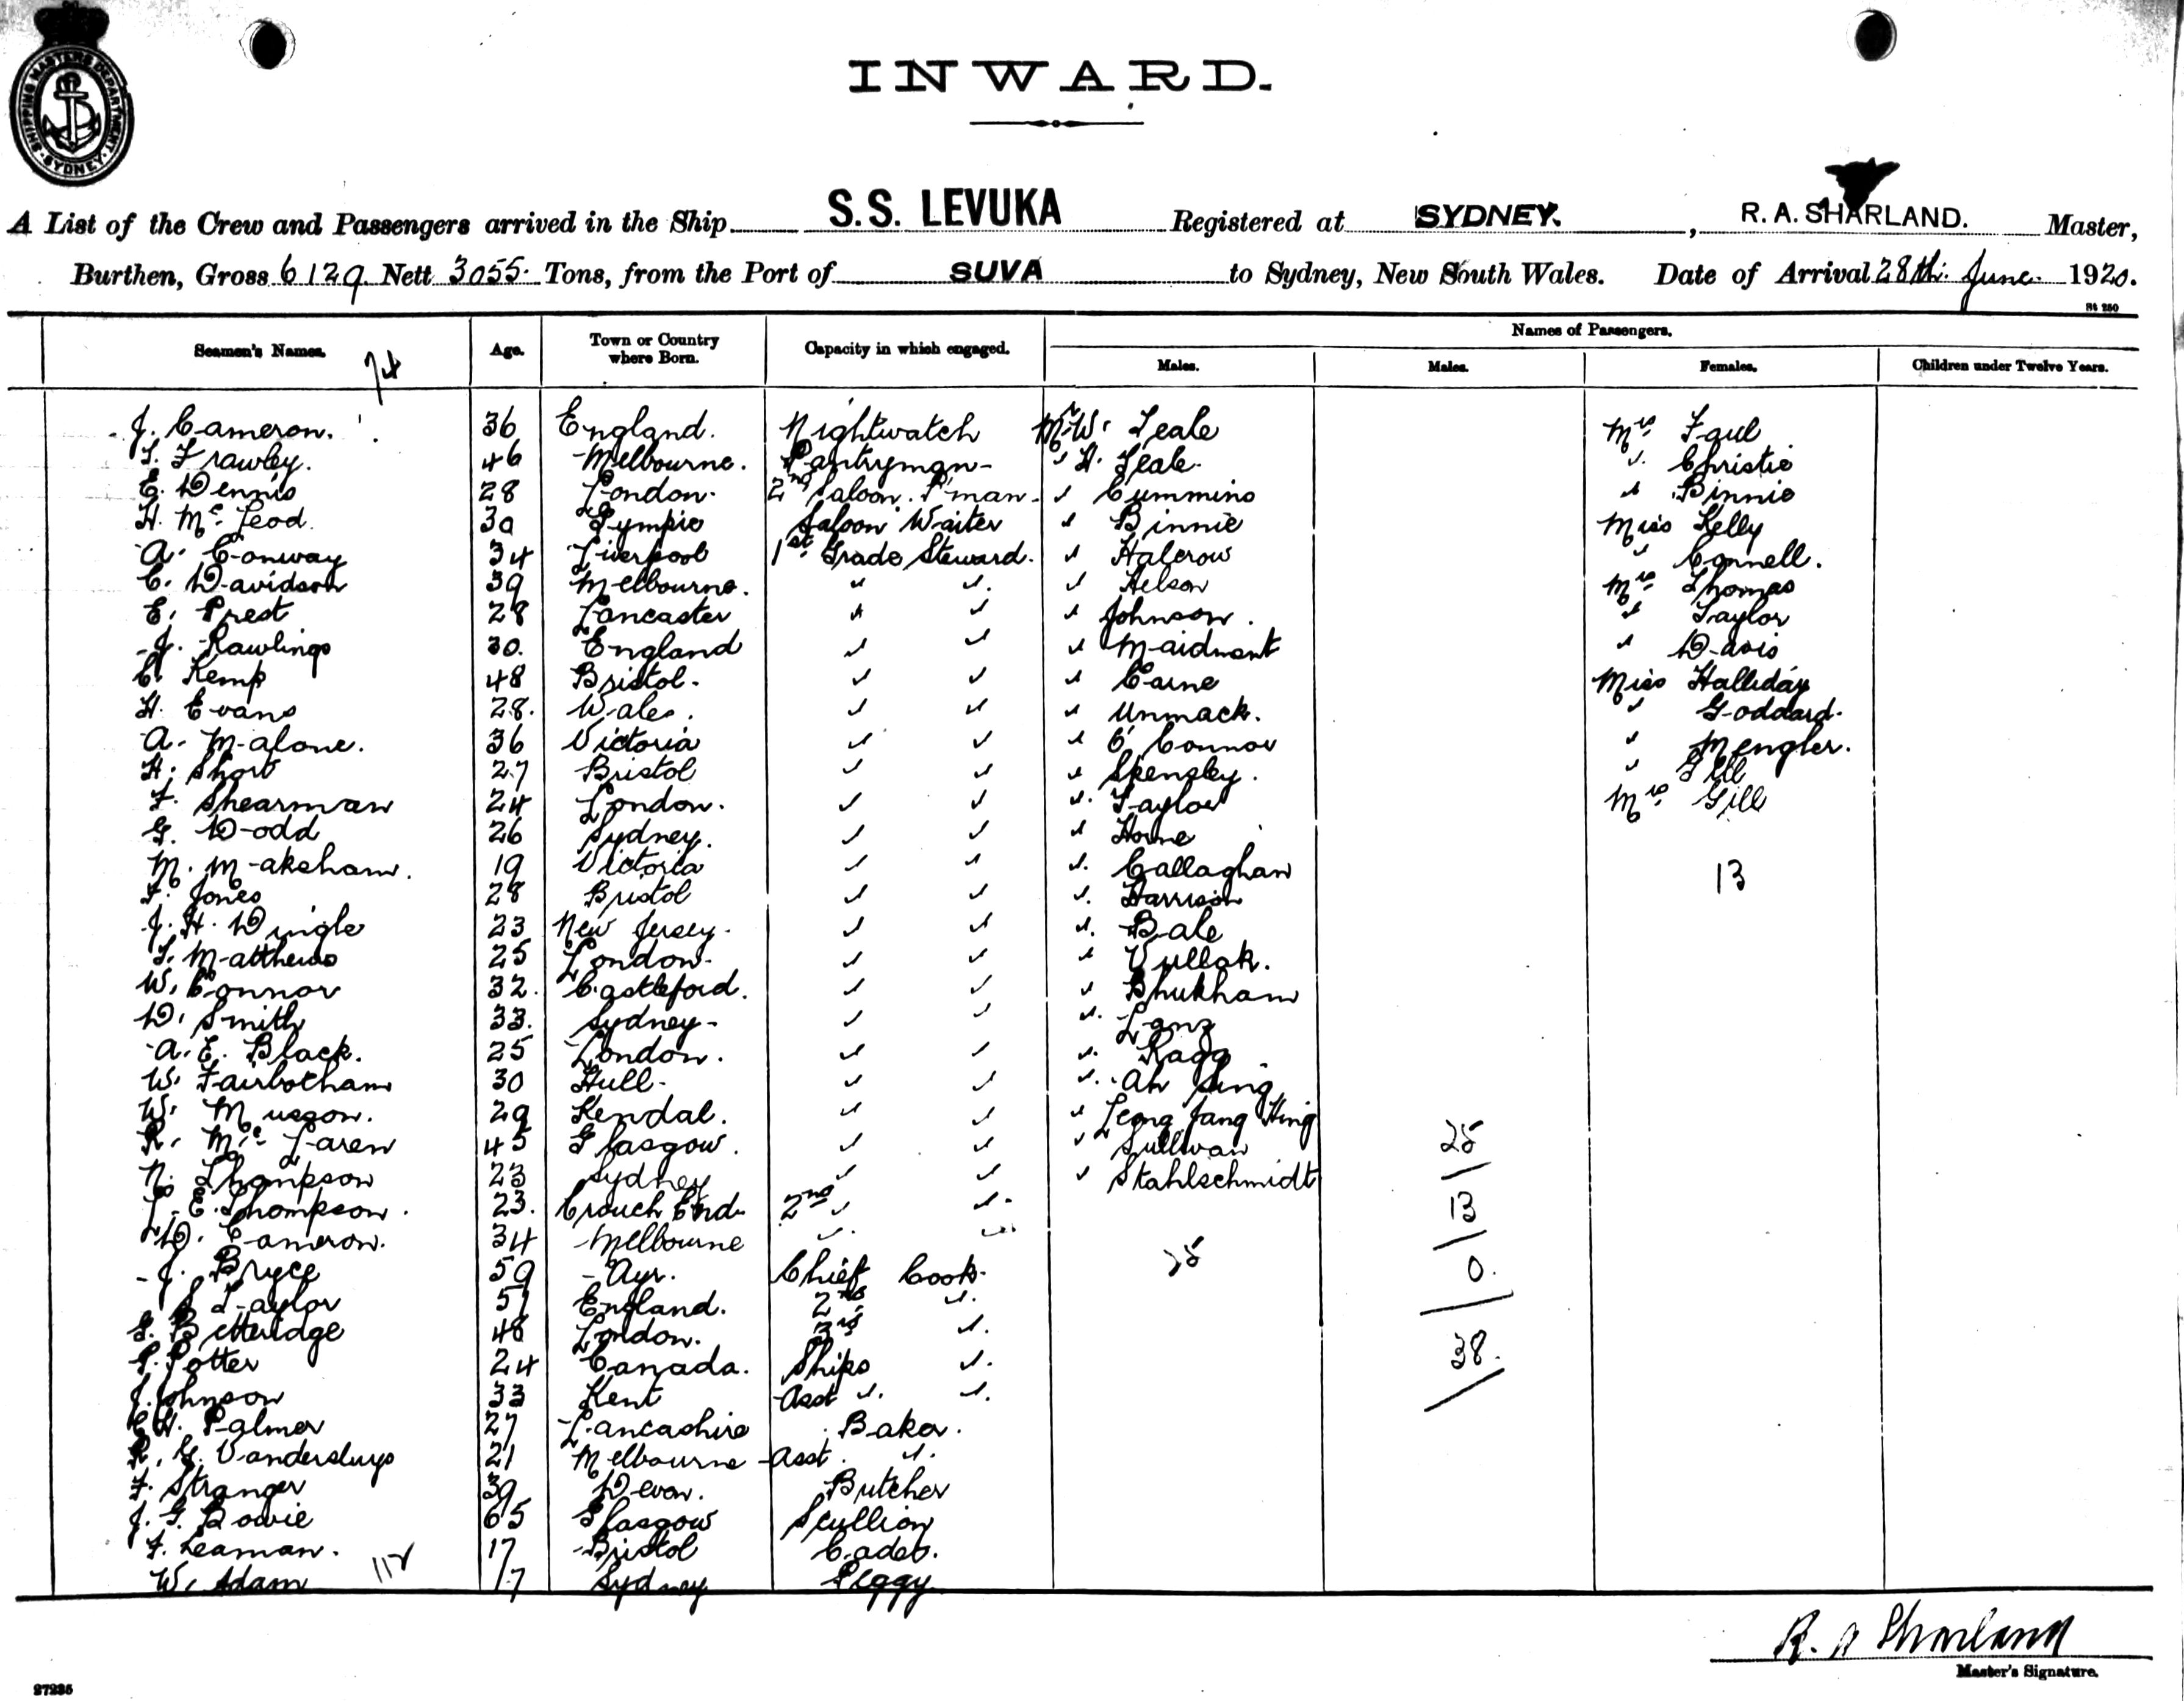 SHIPPING MASTERS DEPARTMENT
SYDNEY
INWARD.
A List of the Crew and Passengers arrived in the Ship S.S. LEVUKA Registered at SYDNEY. , R. A. SHARLAND. Master,
Burthen, Gross 6129 Nett 3055. Tons, from the Port of SUVA to Sydney, New South Wales. Date of Arrival 28th. June. 1920.
St 250
Names of Passengers.
Seamen's Names. Age. Town or Country where Born. Capacity in which engaged. Males. Males. Females. Children under Twelve Years.
74
J. Cameron. 36 England. Nightwatch Mr W. Teale Mrs Faul
T. Frawley. 46 Melbourne. Pantryman " H. Teale. " Christie
E. Dennis 28 London. 2nd Saloon. P'man. " Cummins " Binnie
H. Mc Leod. 30 Gympie Saloon Waiter " Binnie Miss Kelly
A. Conway 34 Liverpool 1st Grade Steward. " Halcrow " Connell.
C. Davidson 39 Melbourne. " " " Nelson Mrs Thomas
E. Prest 28 Lancaster " " " Johnson. " Taylor
J. Rawlings 30. England " " " Maidment " Davis
C. Kemp 48 Bristol. " " " Carne Miss Halliday
H. Evans 28. Wales. " " " Unmack. " Goddard.
A. Malone. 36 Victoria " " " O'Connor " Mengler.
H. Short 27 Bristol " " " Spensley. " Gill
F. Shearman 24 London. " " " Taylor Mrs Gill
G. Dodd 26 Sydney. " " " Horne
M. Makeham. 19 Victoria " " " Callaghan 13
F. Jones 28 Bristol " " " Harrison
J. H. Dingle 23 New Jersey. " " " Bale
T. Matthews 25 London. " " " Vullak.
W. Connor 32. Castleford. " " " Bhukham
D. Smith 33. Sydney. " " " Lanz
A. E. Black. 25 London. " " " Ragg
W. Fairbotham 30 Hull. " " " Ah Sing
W. Musgon. 29 Kendal. " " " Leong Jang Hing
R. Mc Laren 45 Glasgow. " " " Sullivan 25
N. Thompson 23 Sydney " " " Stahlschmidt
E. Thompson. 23. Crouch End. 2nd " " 13
D. Cameron. 34 Melbourne " "
J. Bryce 59 Ayr. Chief Cook. 25 0.
S. Taylor 51 England. 2nd "
G. Betteridge 48 London. 3rd "
P. Potter 24 Canada. Ships " 38.
J. Johnson 33 Kent Asst " "
C. H. Palmer 27 Lancashire Baker.
R. G. Vandersluys 21 Melbourne Asst. "
F. Stranger 39 Devon. Butcher
J. G. Bowie 65 Glasgow Scullion
F. Leaman. 17 Bristol Cadet.
W. Adam 17 Sydney Peggy
112
R. A Sharland
Master's Signature.
27235